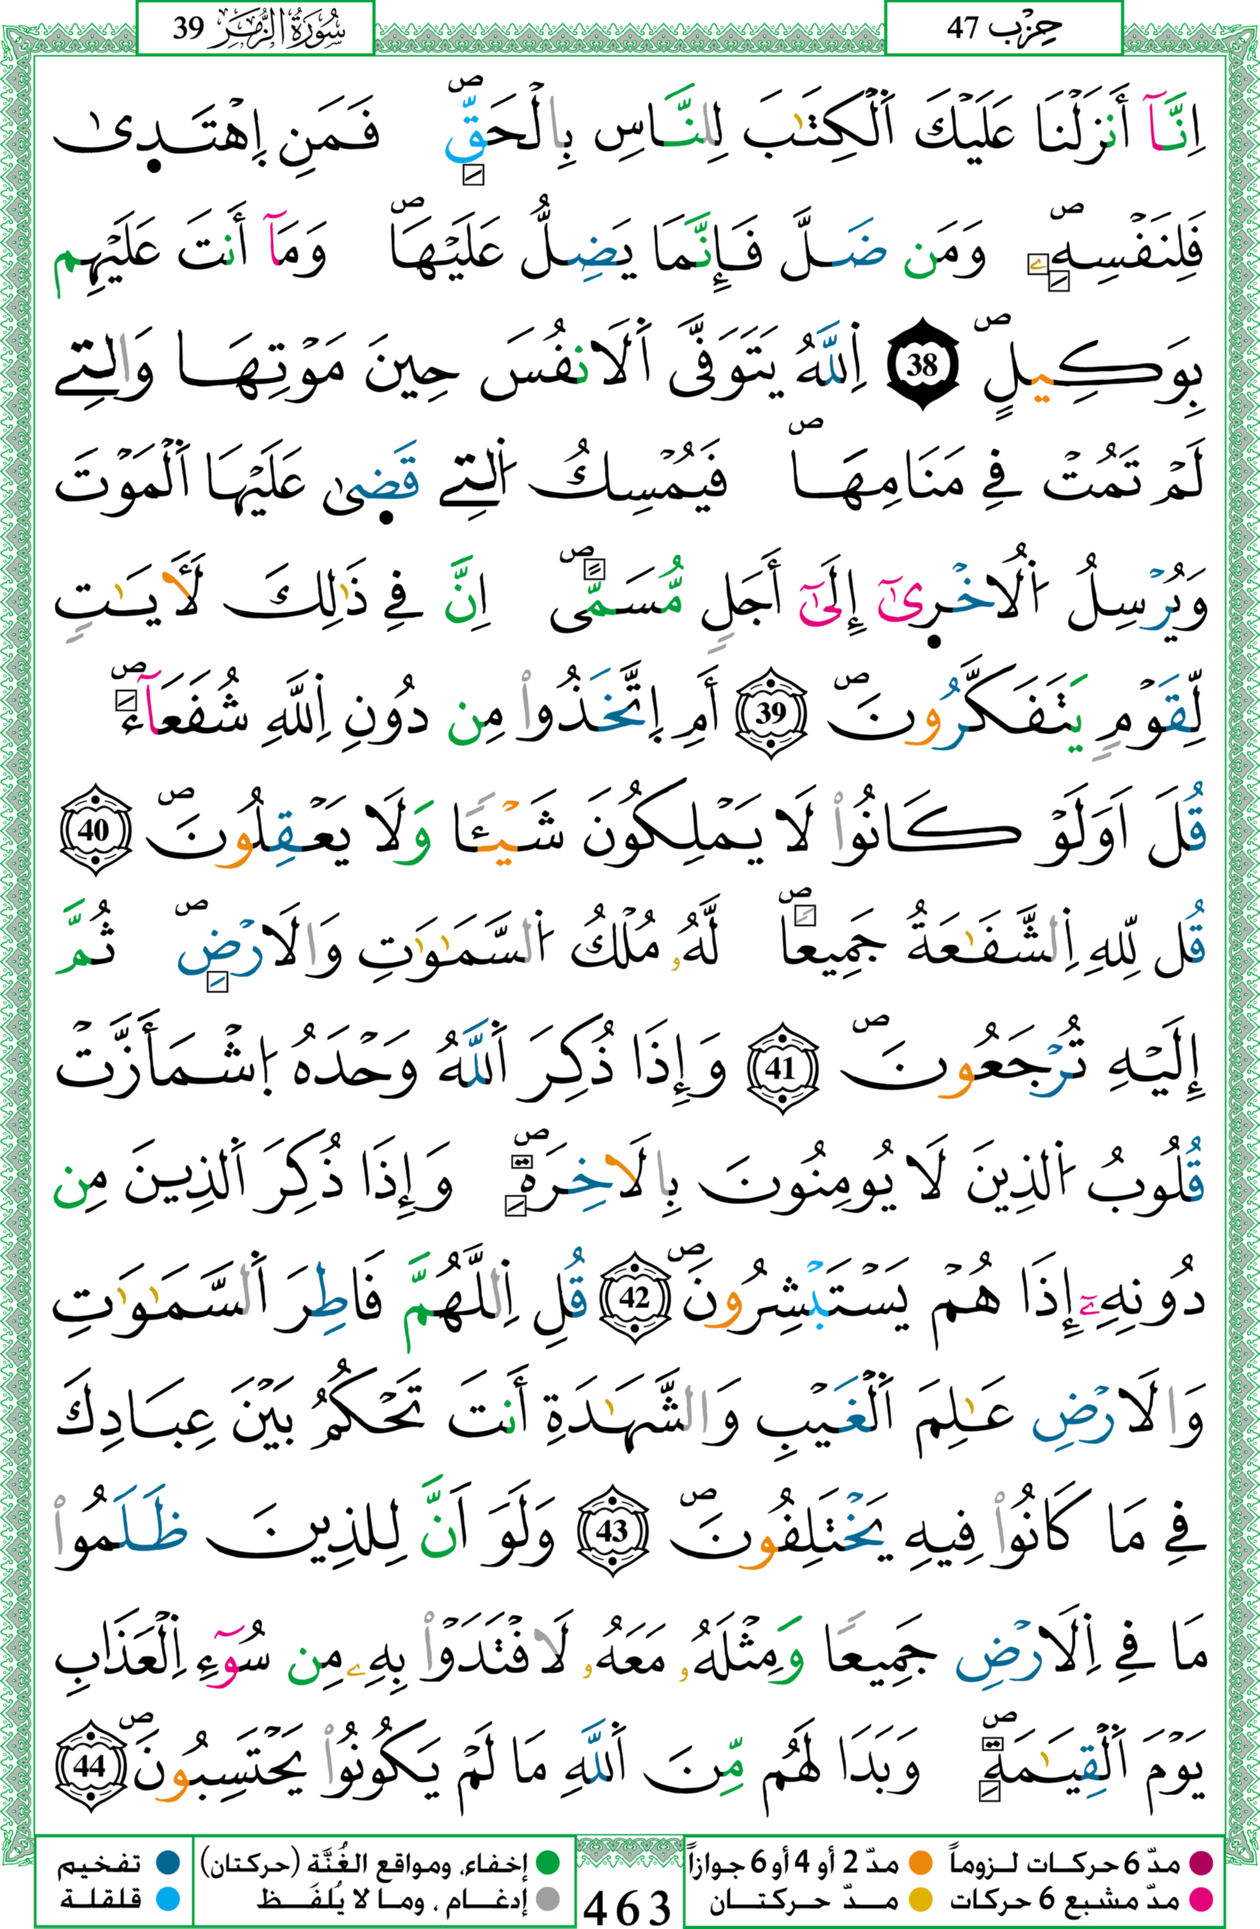 سُورَةُ الزُّمَرِ 39
حِزْب 47
اِنَّآ أَنزَلْنَا عَلَيْكَ اَ۬لْكِتَٰبَ لِلنَّاسِ بِالْحَقِّۖ فَمَنِ اِ۪هْتَد۪يٰ
فَلِنَفْسِهِۦۖ وَمَن ضَلَّ فَإِنَّمَا يَضِلُّ عَلَيْهَاۖ وَمَآ أَنتَ عَلَيْهِم
بِوَكِيلٍۖ 38 اِ۬للَّهُ يَتَوَفَّى اَ۬لَانفُسَ حِينَ مَوْتِهَا وَالتِے
لَمْ تَمُتْ فِے مَنَامِهَاۖ فَيُمْسِكُ اُ۬لتِے قَض۪يٰ عَلَيْهَا اَ۬لْمَوْتَ
وَيُرْسِلُ اُ۬لُاخْر۪يٰٓ إِلَىٰٓ أَجَلٖ مُّسَمّيًۖ اِنَّ فِے ذَٰلِكَ لَأٓيَٰتٖ
لِّقَوْمٖ يَتَفَكَّرُونَۖ 39 أَمِ اِ۪تَّخَذُواْ مِن دُونِ اِ۬للَّهِ شُفَعَآءَۖ
قُلَ اَوَلَوْ كَانُواْ لَا يَمْلِكُونَ شَيْـٔاٗ وَلَا يَعْقِلُونَۖ 40
قُل لِّلهِ اِ۬لشَّفَٰعَةُ جَمِيعاٗۖ لَّهُۥ مُلْكُ اُ۬لسَّمَٰوَٰتِ وَالَارْضِۖ ثُمَّ
إِلَيْهِ تُرْجَعُونَۖ 41 وَإِذَا ذُكِرَ اَ۬للَّهُ وَحْدَهُ اُ۪شْمَأَزَّتْ
قُلُوبُ اُ۬لذِينَ لَا يُومِنُونَ بِالَاخِرَةِۖ وَإِذَا ذُكِرَ اَ۬لذِينَ مِن
دُونِهِۦٓ إِذَا هُمْ يَسْتَبْشِرُونَۖ 42 قُلِ اِ۬للَّهُمَّ فَاطِرَ اَ۬لسَّمَٰوَٰتِ
وَالَارْضِ عَٰلِمَ اَ۬لْغَيْبِ وَالشَّهَٰدَةِ أَنتَ تَحْكُمُ بَيْنَ عِبَادِكَ
فِے مَا كَانُواْ فِيهِ يَخْتَلِفُونَۖ 43 وَلَوَ اَنَّ لِلذِينَ ظَلَمُواْ
مَا فِے اِ۬لَارْضِ جَمِيعاٗ وَمِثْلَهُۥ مَعَهُۥ لَافْتَدَوْاْ بِهِۦ مِن سُوٓءِ اِ۬لْعَذَابِ
يَوْمَ اَ۬لْقِيَٰمَةِۖ وَبَدَا لَهُم مِّنَ اَ۬للَّهِ مَا لَمْ يَكُونُواْ يَحْتَسِبُونَۖ 44
مدّ 6 حركات لـزوماً مدّ 2 أو 4 أو 6 جوازاً
مدّ مشبع 6 حركات مــدّ حركتــان
463
إخفاء، ومواقع الغُنَّة (حركتان)
إدغـام ، ومـا لا يُلفَـظ
تفخيم
قلقلة